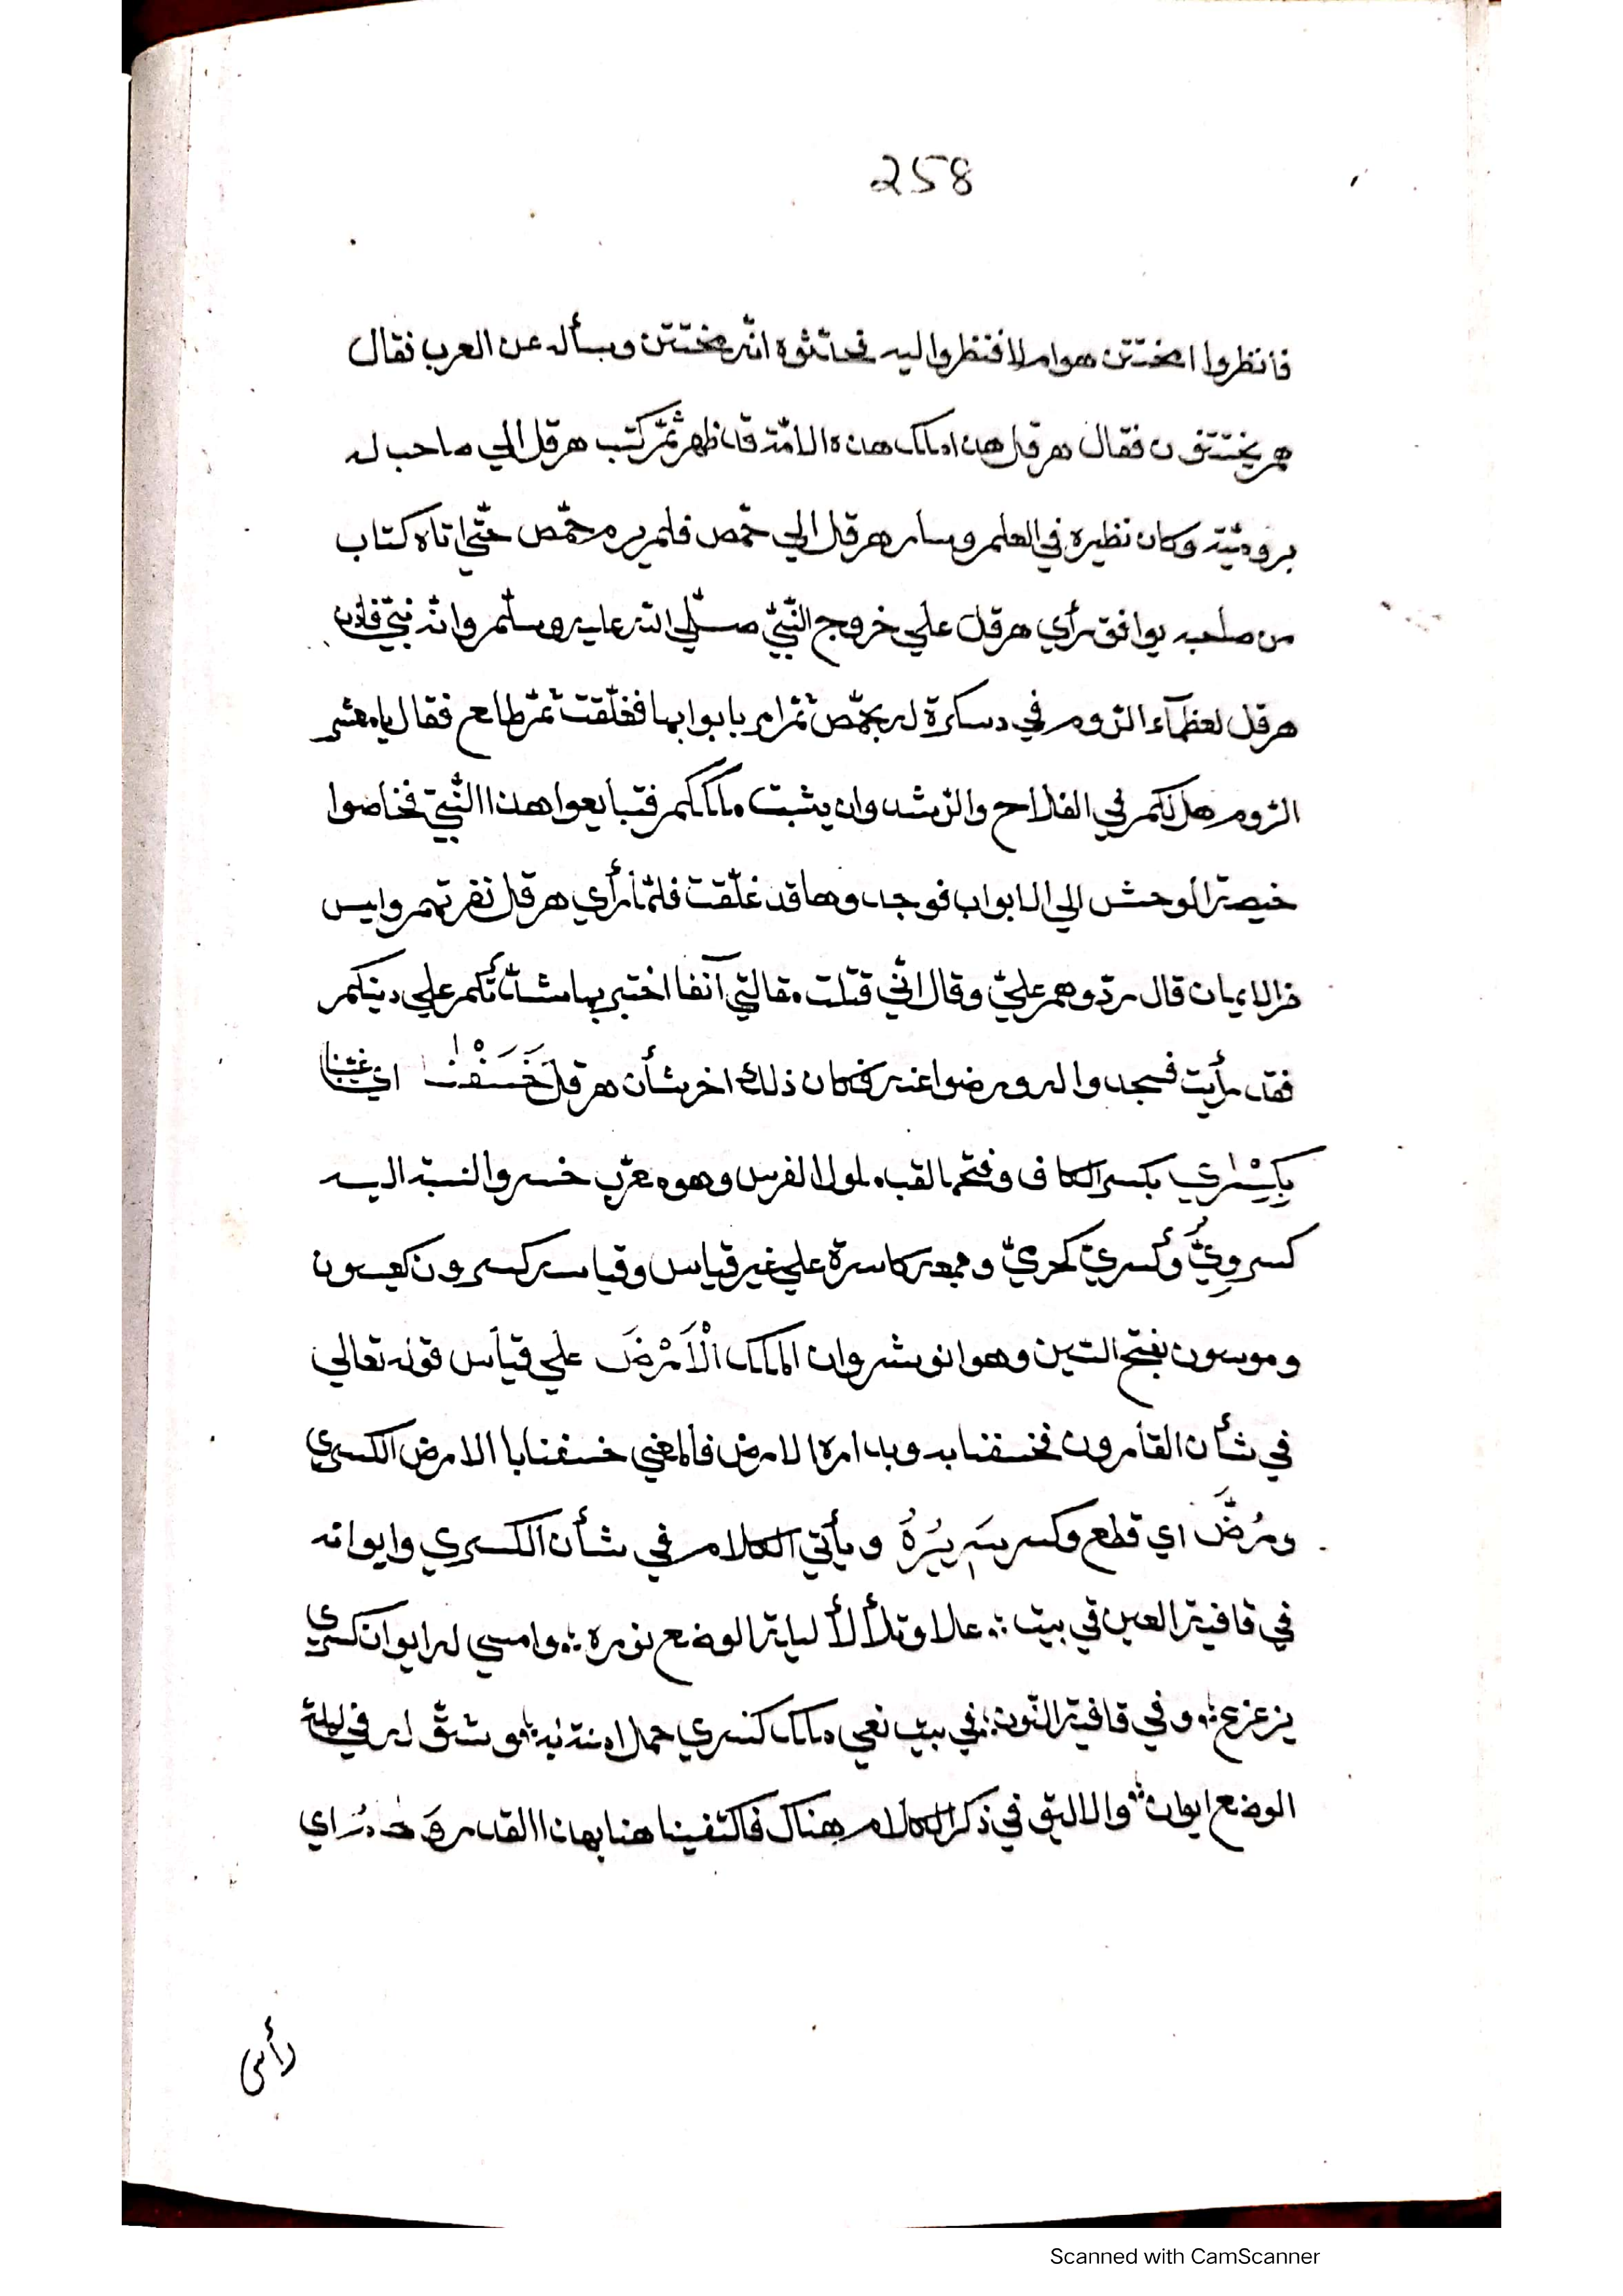 258
فانظروا امختتن هو ام لا فنظروا اليه فحدّثوه انّه مختتن وسأله عن العرب فقال
هم يختتنون فقال هرقل هذا ملك هذه الامّة قد ظهر ثمّ كتب هرقل الي صاحب له
بروميّة وكان نظيره في العلم وسار هرقل الي حمّص فلم يرم حمّص حتّي اتاه كتاب
من صاحبه يوافق رأي هرقل علي خروج النّبيّ صلّي الله عليه وسلّم وانّه نبيّ فاذن
هرقل لعظمآء الرّوم في دسكرة له بحمّص ثمّ امر بابوابها فغلّقت ثمّ طالع فقال يا معشر
الرّوم هل لكم في الفلاح والرّشد وان يثبت ملككم فتبايعوا هذا النّبيّ فخاصوا
خيصة الوحش الي الابواب فوجدوها قد غلّقت فلمّا رأي هرقل نفرتهم وايس
من الايمان قال ردّوهم عليّ وقال انّي قتلت مقالتي آنفا اختبر بها شأتّكم علي دينكم
فقد رأيت فسجدوا له ورضوا عنه فكان ذلك اخر شأن هرقل خَسَفْنٰا اي غيّبنا
بِكِسْرٰي بكسر الكاف وفتحها لقب ملوك الفرس وهو معرّب خسرو النسبة اليه
كسرويّ وكسريّ كحرميّ وجمعه كاسرة علي غير قياس وقياسه كسرون كعيسون
وموسون بفتح السّين وهو انوشروان الملك الْاَرْضَ علي قياس قوله تعالي
في شأن القارون فخسفنا به وبداره الارض فالمعني خسفنا با الارض الكسري
ورُضَّ اي قطع وكسر سَرِيرُهُ ويأتي الكلام في شأن الكسري وايوانه
في قافية العين في بيت ؞ علا وتلألأ ليلة الوضع نوره ؞ وامسي له ايوان كسري
يزعزع ؞ وفي قافية النّون ؞ في بيت نعي ملك كسري حمل امنة به ؞ وشقّ له في ليلة
الوضع ايوان ؞ والاليق في ذكر الكلام هناك فاكتفينا هنا بهذا القدر اي
رأس
Scanned with CamScanner